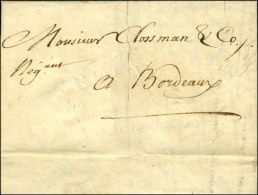 Monsieur Closman & Co/.
Nég.ant
A Bordeaux